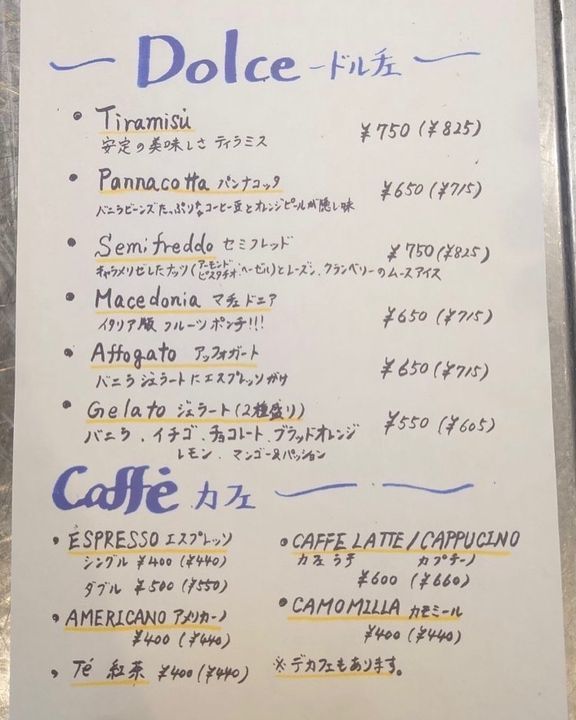 Dolce ードルチェ
• Tiramisù ¥750 (¥825)
安定の美味しさ ティラミス
• Pannacotta パンナコッタ ¥650 (¥715)
バニラビーンズたっぷり コーヒー豆とオレンジピールが隠し味
• Semifreddo セミフレッド ¥750 (¥825)
キャラメリゼしたナッツ(アーモンド ピスタチオ ヘーゼル)とレーズン、クランベリーのムースアイス
• Macedonia マチェドニア ¥650 (¥715)
イタリア版 フルーツポンチ!!!
• Affogato アッフォガート ¥650 (¥715)
バニラジェラートにエスプレッソがけ
• Gelato ジェラート(2種盛り) ¥550 (¥605)
バニラ、イチゴ、チョコレート、ブラッドオレンジ
レモン、マンゴー&パッション
Caffè カフェ
• ESPRESSO エスプレッソ
シングル ¥400 (¥440)
ダブル ¥500 (¥550)
• AMERICANO アメリカーノ
¥400 (¥440)
• Té 紅茶 ¥400 (¥440)
• CAFFE LATTE / CAPPUCINO
カフェラテ カプチーノ
¥600 (¥660)
• CAMOMILLA カモミール
¥400 (¥440)
※デカフェもあります。